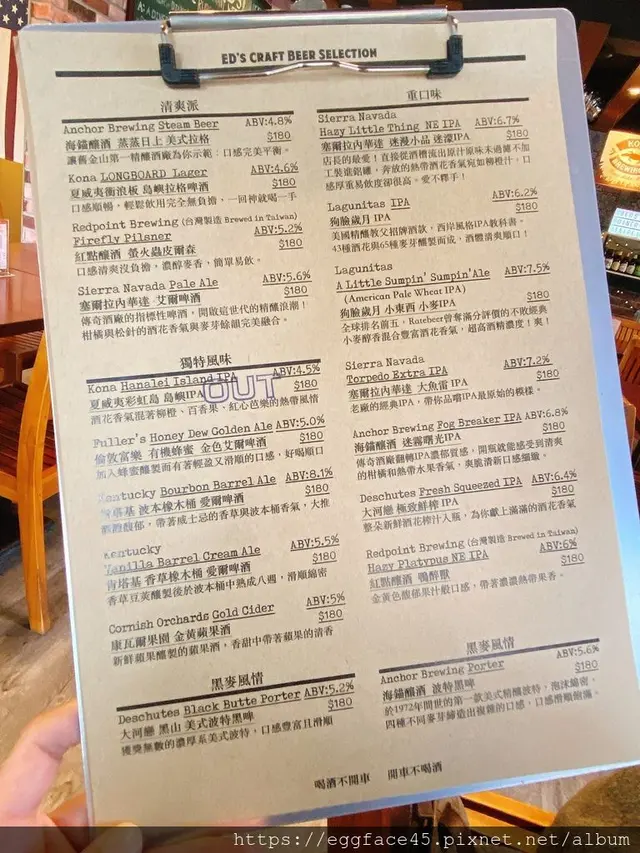 ED'S CRAFT BEER SELECTION
清爽派
Anchor Brewing Steam Beer ABV:4.8%
海錨釀酒 蒸蒸日上 美式拉格 $180
讓舊金山第一精釀酒廠為你示範:口感完美平衡。
Kona LONGBOARD Lager ABV:4.6%
夏威夷衝浪板 島嶼拉格啤酒 $180
口感順暢,輕鬆飲用完全無負擔,一回神就喝一手
Redpoint Brewing (台灣製造 Brewed in Taiwan)
Firefly Pilsner ABV:5.2%
紅點釀酒 螢火蟲皮爾森 $180
口感清爽沒負擔,濃醇麥香,簡單易飲。
Sierra Navada Pale Ale ABV:5.6%
塞爾拉內華達 艾爾啤酒 $180
傳奇酒廠的指標性啤酒,開啟這世代的精釀浪潮!
柑橘與松針的酒花香氣與麥芽餘韻完美融合。
獨特風味
Kona Hanalei Island IPA ABV:4.5%
夏威夷彩虹島 島嶼IPA $180
OUT
酒花香氣混著柳橙、百香果、紅心芭樂的熱帶風情
Fuller's Honey Dew Golden Ale ABV:5.0%
倫敦富樂 有機蜂蜜 金色艾爾啤酒 $180
加入蜂蜜釀製而有著輕盈又滑順的口感,好喝順口
Kentucky Bourbon Barrel Ale ABV:8.1%
肯塔基 波本橡木桶 愛爾啤酒 $180
酒體馥郁,帶著威士忌的香草與波本桶香氣,大推
Kentucky
Vanilla Barrel Cream Ale ABV:5.5%
肯塔基 香草橡木桶 愛爾啤酒 $180
香草豆莢釀製後於波本桶中熟成八週,滑順綿密
Cornish Orchards Gold Cider ABV:5%
康瓦爾果園 金黃蘋果酒 $180
新鮮蘋果釀製的蘋果酒,香甜中帶著蘋果的清香
黑麥風情
Deschutes Black Butte Porter ABV:5.2%
大河戀 黑山 美式波特黑啤 $180
獲獎無數的濃厚系美式波特,口感豐富且滑順
重口味
Sierra Navada
Hazy Little Thing NE IPA ABV:6.7%
塞爾拉內華達 迷漫小品 迷濛IPA $180
店長的最愛!直接從酒槽流出原汁原味未過濾不加
工裝進鋁罐,奔放的熱帶酒花香氣宛如柳橙汁,口
感厚重易飲度卻很高。愛不釋手!
Lagunitas IPA ABV:6.2%
狗臉歲月 IPA $180
美國精釀教父招牌酒款,西岸風格IPA教科書。
43種酒花與65種麥芽釀製而成,酒體清爽順口!
Lagunitas
A Little Sumpin' Sumpin'Ale ABV:7.5%
(American Pale Wheat IPA)
狗臉歲月 小東西 小麥IPA $180
全球排名前五,Ratebeer曾奪滿分評價的不敗經典
小麥醇香混合豐富酒花香氣,超高酒精濃度!爽!
Sierra Navada
Torpedo Extra IPA ABV:7.2%
塞爾拉內華達 大魚雷 IPA $180
老廠的經典IPA,帶你品嚐IPA最原始的模樣。
Anchor Brewing Fog Breaker IPA ABV:6.8%
海錨釀酒 迷霧曙光IPA $180
傳奇酒廠翻轉IPA濃郁質感,開瓶就能感受到清爽
的柑橘和熱帶水果香氣,爽脆清新口感細緻。
Deschutes Fresh Squeezed IPA ABV:6.4%
大河戀 極致鮮榨 IPA $180
整朵新鮮酒花榨汁入瓶,為你獻上滿滿的酒花香氣
Redpoint Brewing (台灣製造 Brewed in Taiwan)
Hazy Platypus NE IPA ABV:6%
紅點釀酒 鴨醉獸 $180
金黃色馥郁果汁般口感,帶著濃濃熱帶果香。
黑麥風情
Anchor Brewing Porter ABV:5.6%
海錨釀酒 波特黑啤 $180
於1972年問世的第一款美式精釀波特,泡沫綿密,
四種不同麥芽締造出複雜的口感,口感滑順飽滿。
喝酒不開車 開車不喝酒
https://eggface45.pixnet.net/album